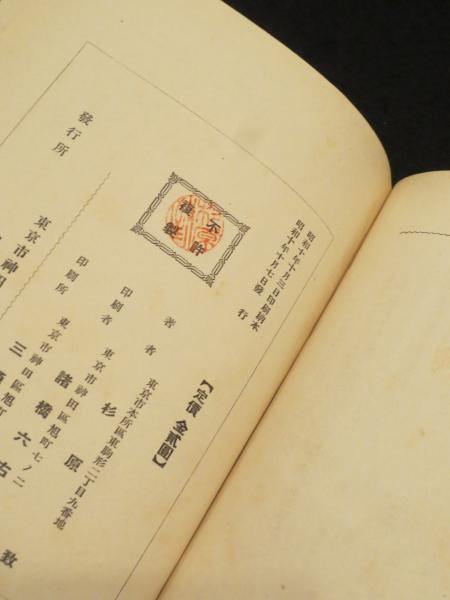 昭和十年十月三日印刷納本
昭和十年十月七日發行
不許
複製
【定價 金貳圓】
著者 東京市本所區東駒形二丁目九番地
杉原
印刷者 東京市神田區旭町七ノ二
諸橋六右
印刷所 東京市神田區旭町
三
發行所
東京市神田
致